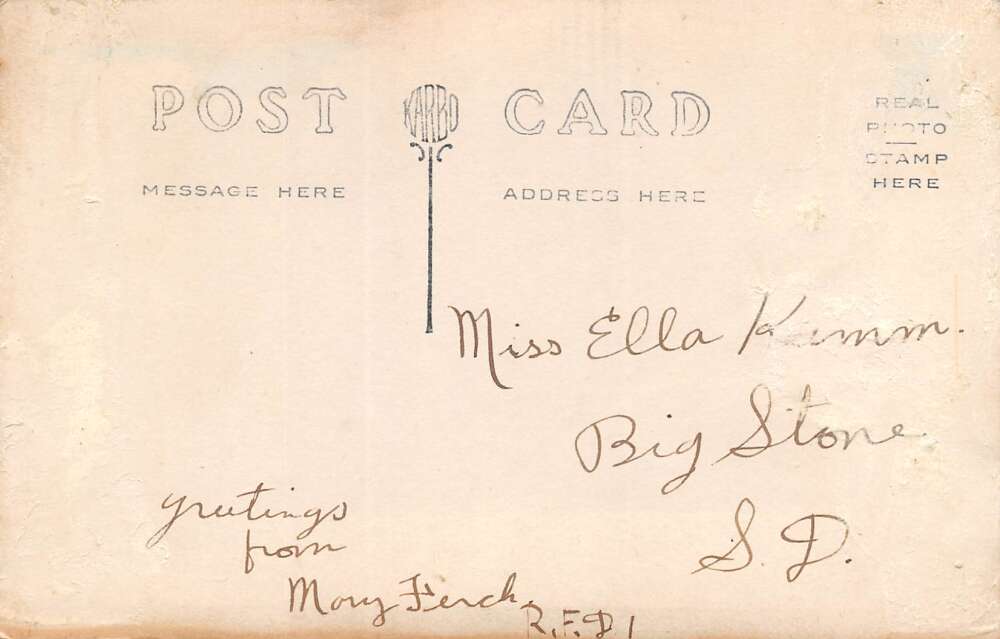 POST KARBO CARD
REAL
PHOTO
STAMP
HERE
MESSAGE HERE
ADDRESS HERE
Miss Ella Kamm.
Big Stone
S. D.
greetings
from
Mary Ferch
R.F.D 1